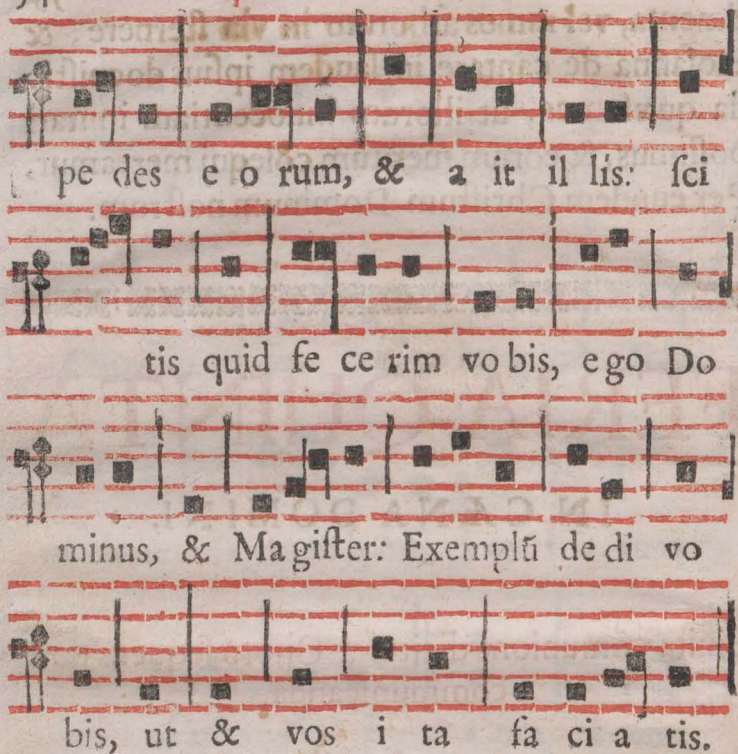 pe des e o rum, & a it il lis: ſci
tis quid fe ce rim vo bis, e go Do
minus, & Ma giſter: Exemplū de di vo
bis, ut & vos i ta fa ci a tis.